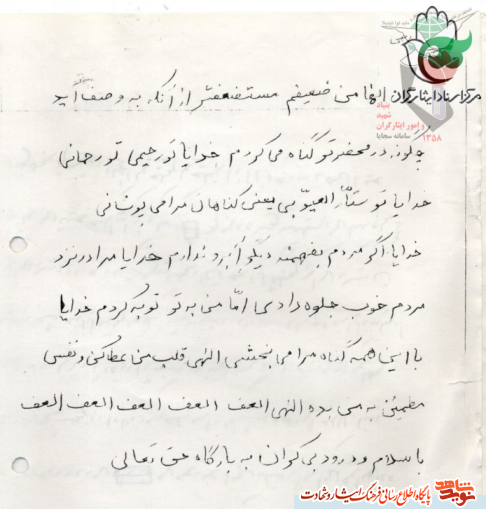 مرکز اسناد ایثارگران
بنیاد
شهید
و امور ایثارگران
۱۳۵۸
سامانه سجایا
الها من ضعیفم مستضعفتر از آنکه به وصف آید
در محضر تو گناه می کردم خدایا تو رحیمی تو رحمانی
خدایا تو ستّار العیوبی یعنی گناهان مرا می پوشانی
خدایا اگر مردم بفهمند دیگر آبرو ندارم خدایا مرا در نزد
مردم خوب جلوه دادی امّا من به تو توبه کردم خدایا
با این همه گناه مرا می بخشی الهی قلب من عطا کن و نفسی
مطمئن به من بده الهی العف العف العف العف العف
با سلام و درود بی کران به بارگاه حق تعالی
نوید شاهد پایگاه اطلاع رسانی فرهنگ ایثار و شهادت